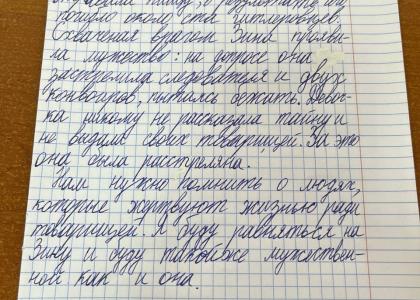 пищу, в результате чего
погибло около ста гитлеровцев.
Схваченная врагом Зина прояви-
ла мужество: на допросе она
застрелила следователя и двух
конвоиров, пытаясь бежать. Девоч-
ка никому не рассказала тайну и
не выдала своих товарищей. За это
она была расстреляна.
Нам нужно помнить о людях,
которые жертвуют жизнью ради
товарищей. Я буду равняться на
Зину и буду такой же мужествен-
ной как и она.